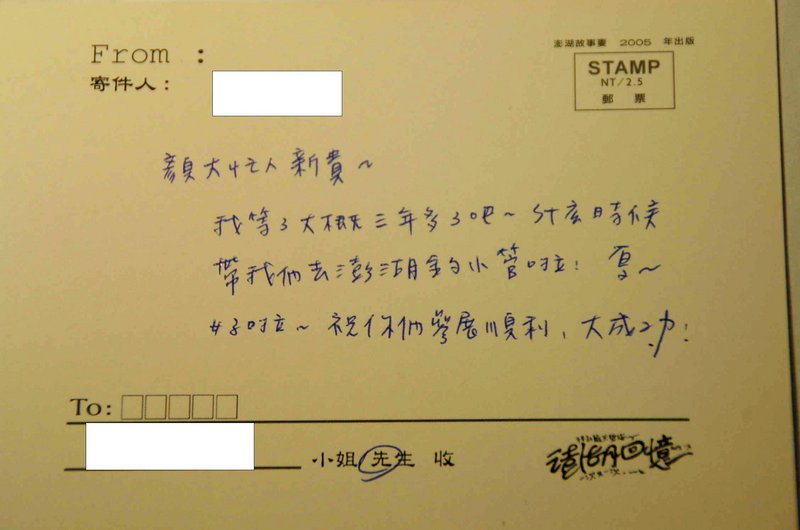 From :
寄件人：
澎湖故事妻 2005 年出版
STAMP
NT/2.5
郵 票
顏大忙人新貴～
我等了大概三年多了吧～什麼時候
帶我們去澎湖釣小管啦！厚～
好了啦～祝你們發展順利，大成功！
To:
小姐 先生 收
澎湖回憶